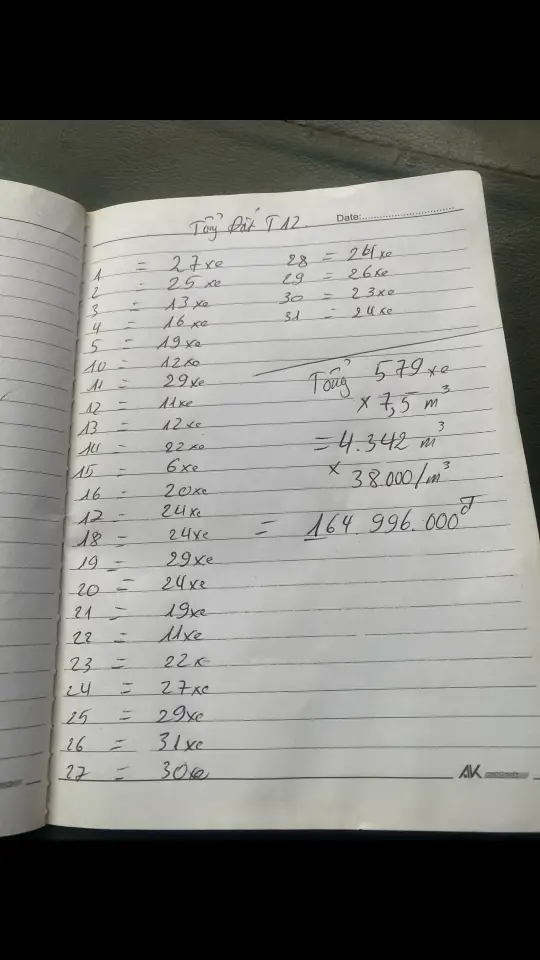 Tổng Đất T12
Date:
1 = 27xe
2 = 25xe
3 = 13xe
4 = 16xe
5 = 19xe
10 = 12xe
11 = 29xe
12 = 11xe
13 = 12xe
14 = 22xe
15 = 6xe
16 = 20xe
17 = 24xe
18 = 24xe
19 = 29xe
20 = 24xe
21 = 19xe
22 = 11xe
23 = 22x
24 = 27xe
25 = 29xe
26 = 31xe
27 = 30xe
28 = 24xe
29 = 26xe
30 = 23xe
31 = 24xe
Tổng 579xe
x 7,5 m³
= 4.342 m³
x 38.000/m³
= 164.996.000đ
AK